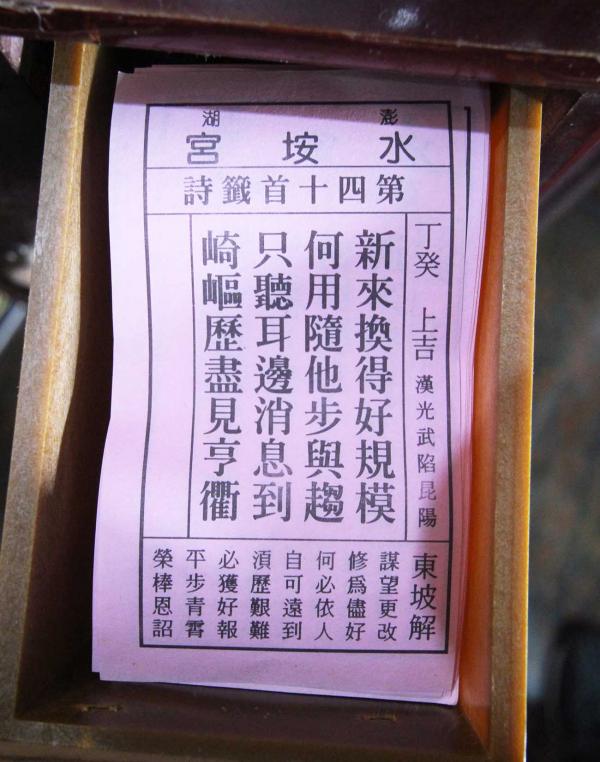 澎湖
水垵宮
第四十首籤詩
丁癸 上吉 漢光武陷昆陽
新來換得好規模
何用隨他步與趨
只聽耳邊消息到
崎嶇歷盡見亨衢
東坡解
謀望更改
修爲儘好
何必依人
自可遠到
湏歷艱難
必獲好報
平步青霄
榮棒恩詔